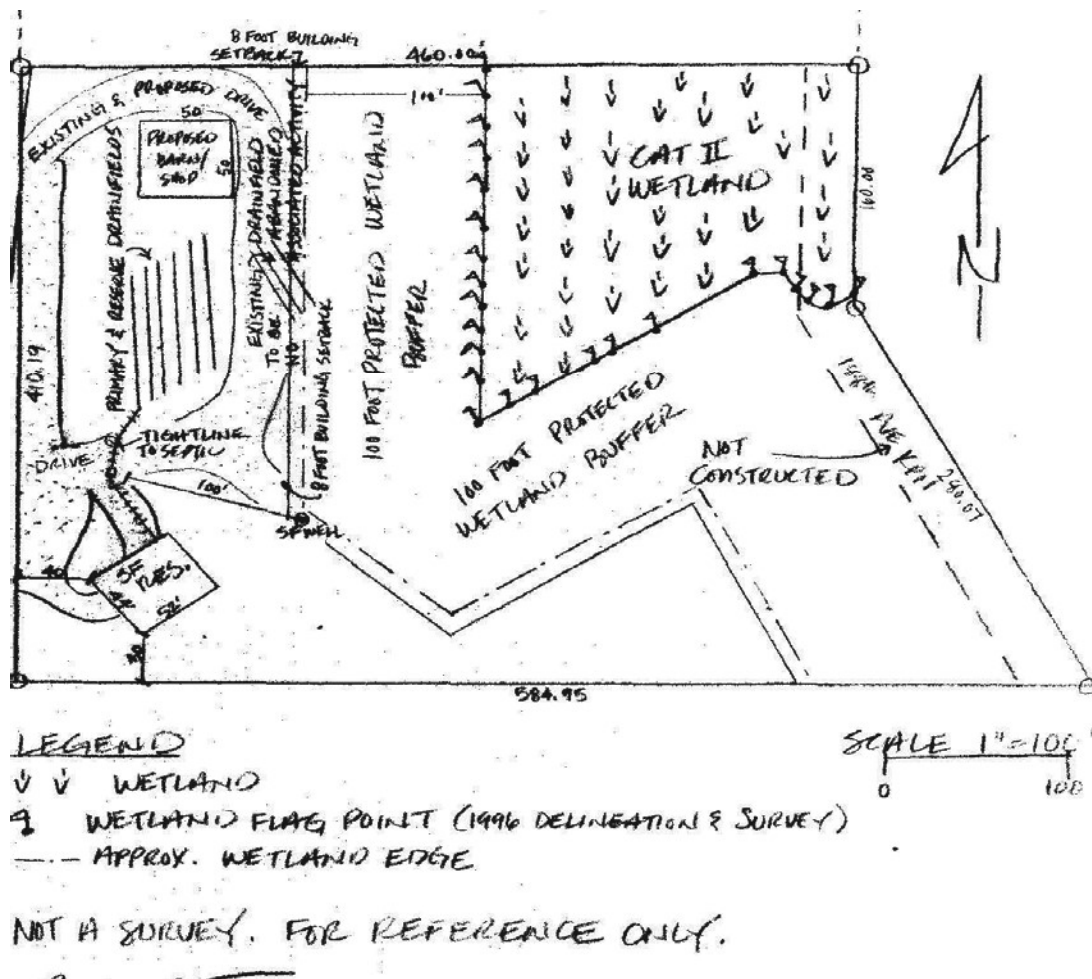 8 FOOT BUILDING
SETBACK
460.80
100'
EXISTING & PROPOSED DRIVE
50
PROPOSED
BARN/
SHOP
50
PRIMARY & RESERVE DRAINFIELDS
EXISTING DRAINFIELD
TO BE ABANDONED
NO ASSOCIATED ACTIVITY
8 FOOT BUILDING SETBACK
100 FOOT PROTECTED WETLAND
BUFFER
CAT II
WETLAND
N
410.19
TIGHTLINE
TO SEPTIC
DRIVE
100'
SF WELL
100 FOOT PROTECTED
WETLAND BUFFER
NOT
CONSTRUCTED
AVE KPN
240.07
40
SF
RES.
44
52'
30
584.95
LEGEND
WETLAND
WETLAND FLAG POINT (1996 DELINEATION & SURVEY)
APPROX. WETLAND EDGE
SCALE 1"=100'
0 100
NOT A SURVEY. FOR REFERENCE ONLY.